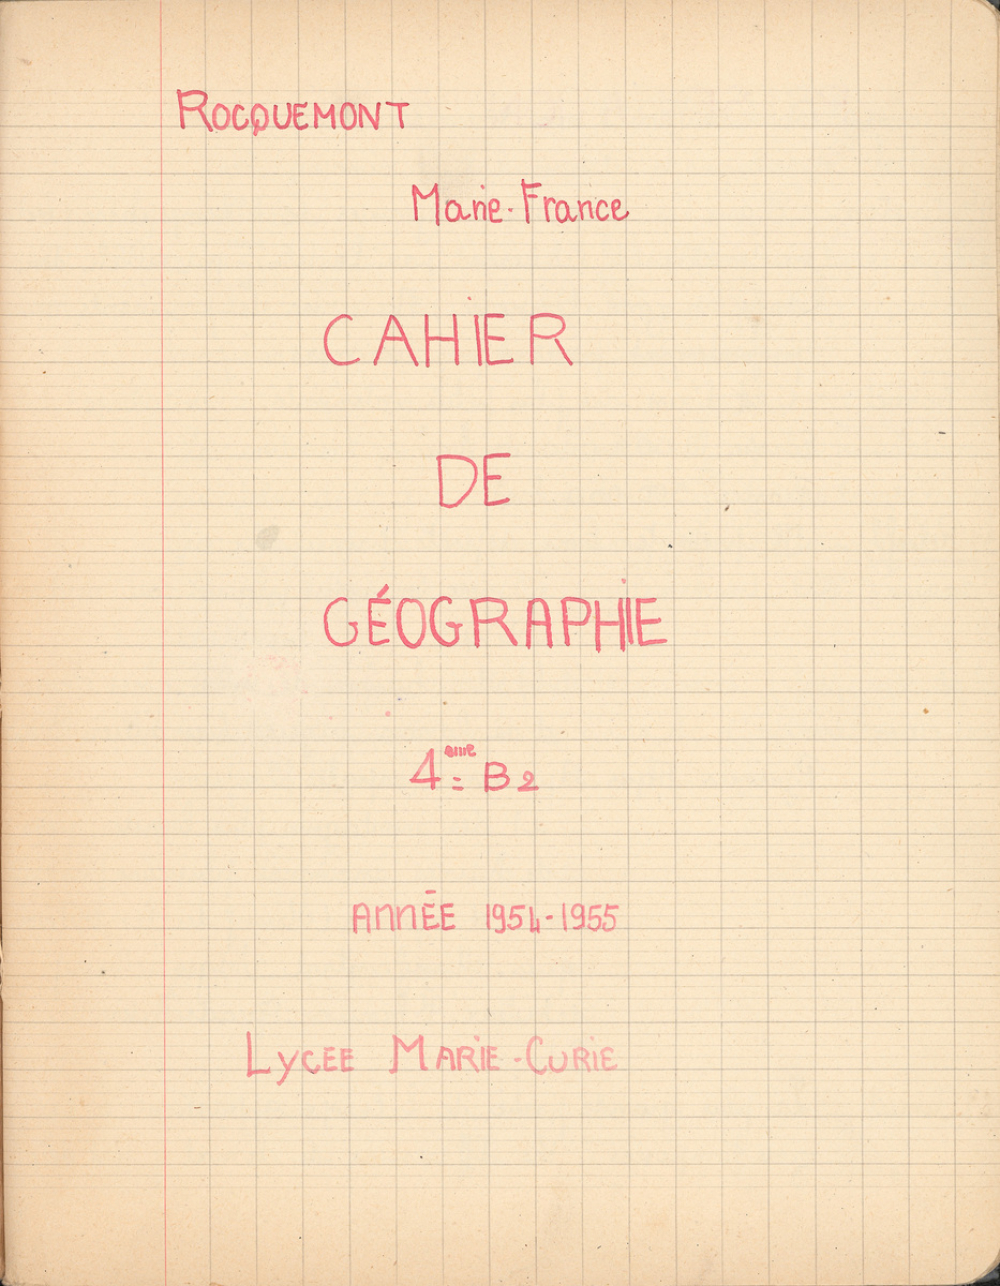 ROCQUEMONT
Marie-France
CAHIER
DE
GÉOGRAPHIE
4ème B2
ANNÉE 1954-1955
LYCEE MARIE-CURIE